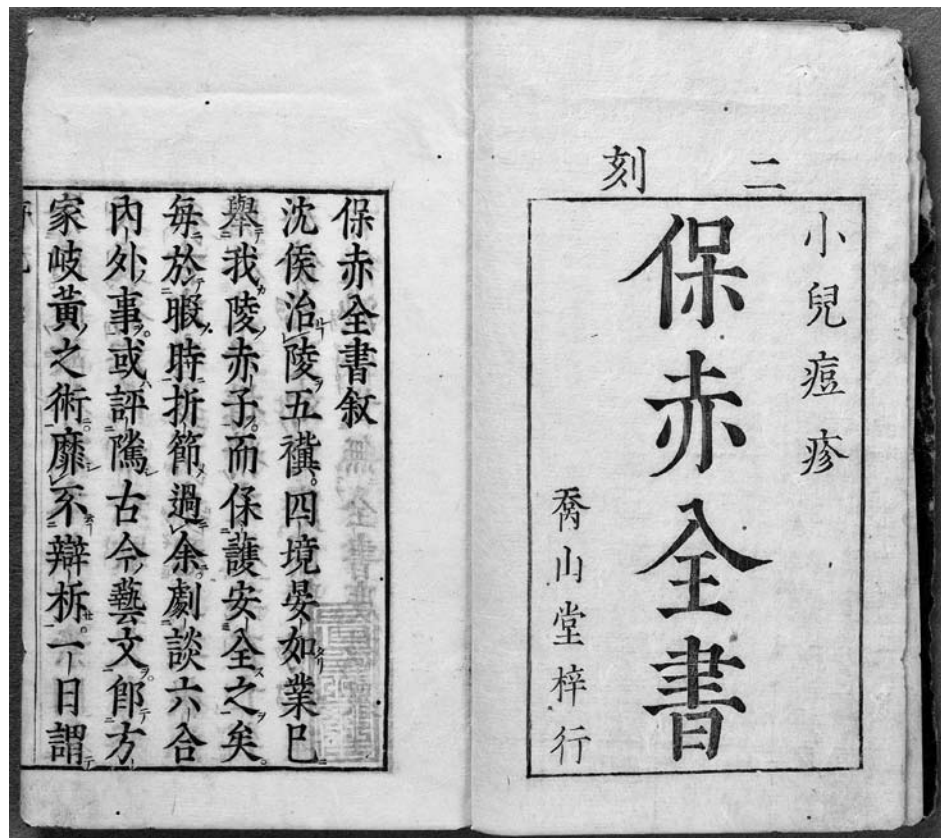 二刻
小兒痘疹
保赤全書
喬山堂梓行
保赤全書敘
沈侯治陵五禩四境晏如業巳
舉我陵赤子而保護安全之矣
每於暇時折節過余劇談六合
內外事或評隲古今藝文即方
家岐黃之術靡不辯析一日謂